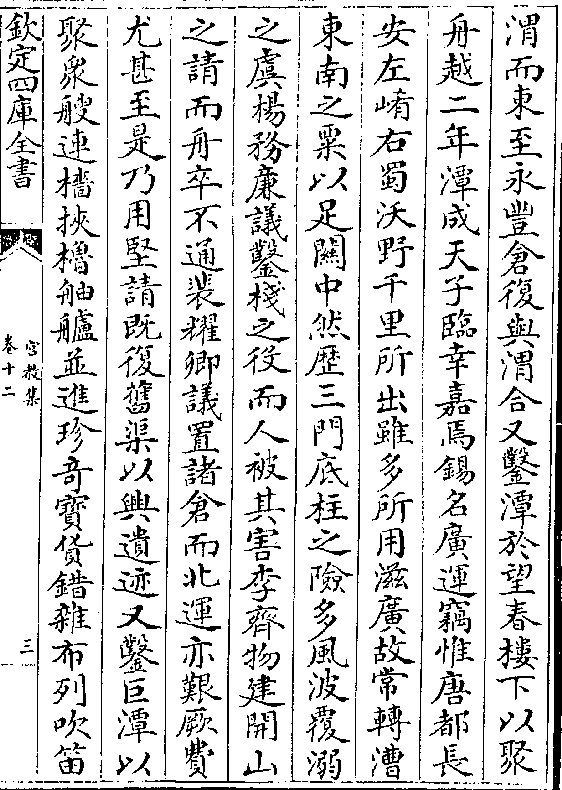 渭而東至永豐倉復與渭合又鑿潭於望春樓下以聚
舟越二年潭成天子臨幸嘉焉錫名廣運竊惟唐都長
安左崤右蜀沃野千里所出雖多所用滋廣故常轉漕
東南之粟以足關中然歴三門底柱之險多風波覆溺
之虞楊務廉議鑿棧之役而人被其害李齊物建開山
之請而舟卒不通裴耀卿議置諸倉而北運亦艱厥費
尤甚至是乃用堅請既復舊渠以興遺迹又鑿巨潭以
聚衆艘連檣挾櫓舳艫並進珍竒寶貨錯雜布列吹笛
欽定四庫全書
宫教集
卷十二
三